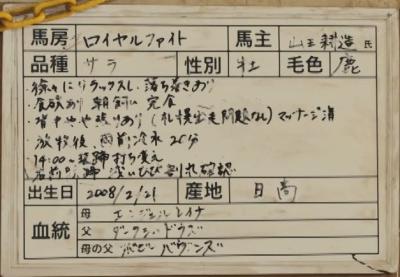 馬房 ロイヤルファイト 馬主 山王耕造氏
品種 サラ 性別 牡 毛色 鹿
・徐々にリラックスし、落ち着きあり
・食欲あり 朝飼い 完食
・背中やや張りあり(札幌出走問題なし)マッサージ済
・放牧後、両前冷水20分
・14:00~装蹄打ち変え
・右前 蹄 浅いひび割れ確認
出生日 2008/2/21 産地 日高
血統
母 エンジェルレイナ
父 ダークシャドウズ
母の父 ボビーバウンズ